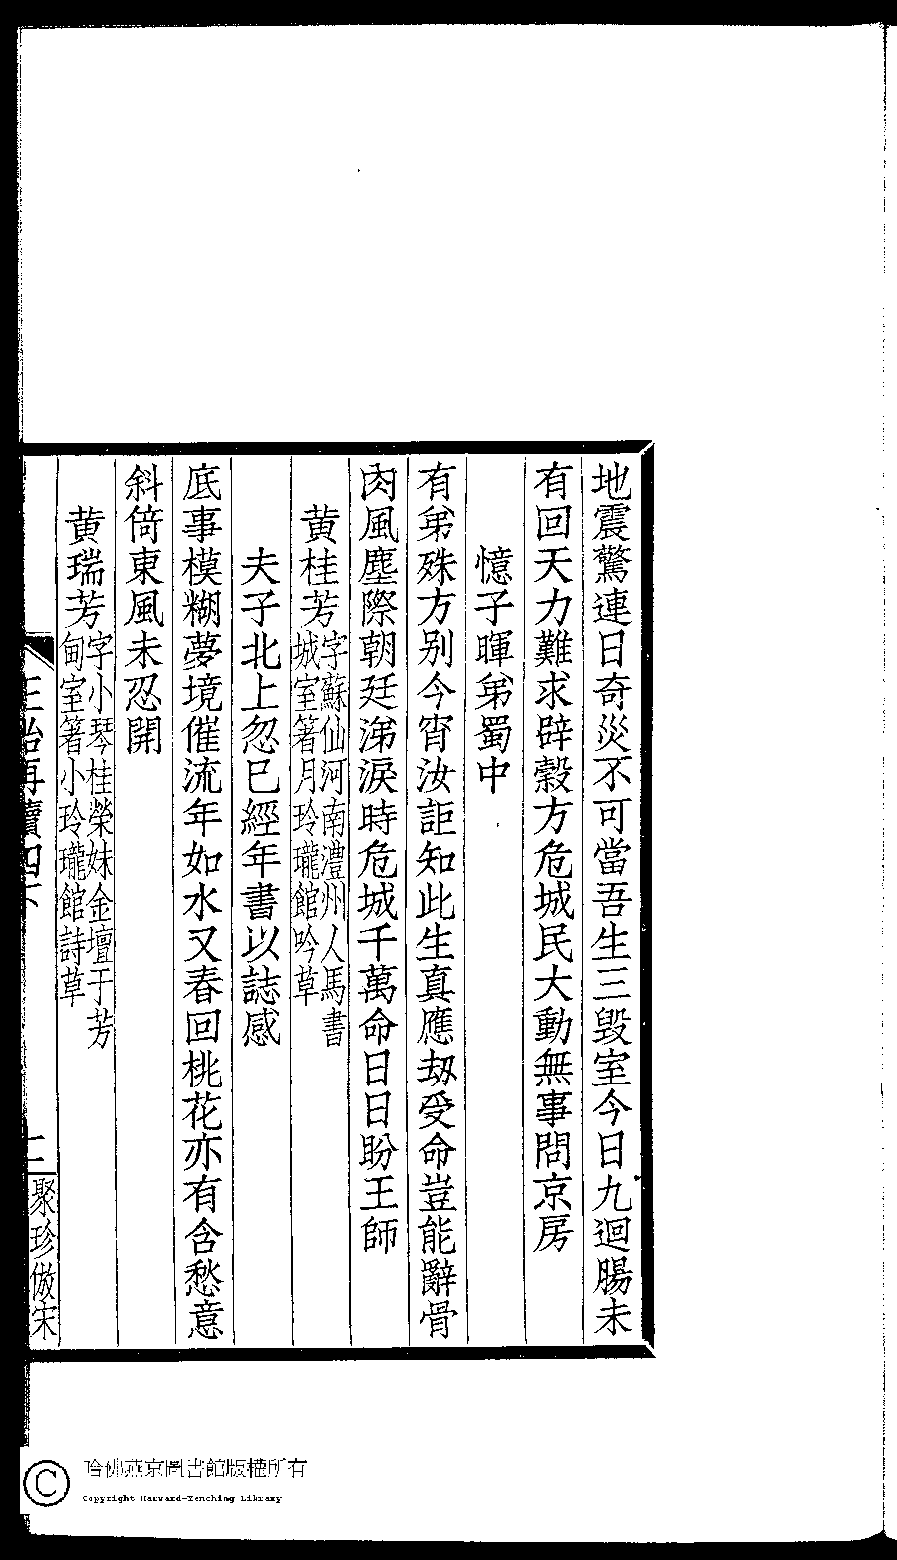 地震驚連日奇災不可當吾生三毀室今日九迴腸未
有回天力難求辟穀方危城民大動無事問京房
憶子暉弟蜀中
有弟殊方別今宵汝詎知此生真應劫受命豈能辭骨
肉風塵際朝廷涕淚時危城千萬命日日盼王師
黄桂芳字蘇仙河南澧州人馬書
城室箸月玲瓏館吟草
夫子北上忽巳經年書以誌感
底事模糊夢境催流年如水又春回桃花亦有含愁意
斜倚東風未忍開
黄瑞芳字小琴桂榮妹金壇于芳
甸室箸小玲瓏館詩草
再續四下
聚珍倣宋
哈佛燕京圖書館版權所有
Copyright Harvard-Yenching Library